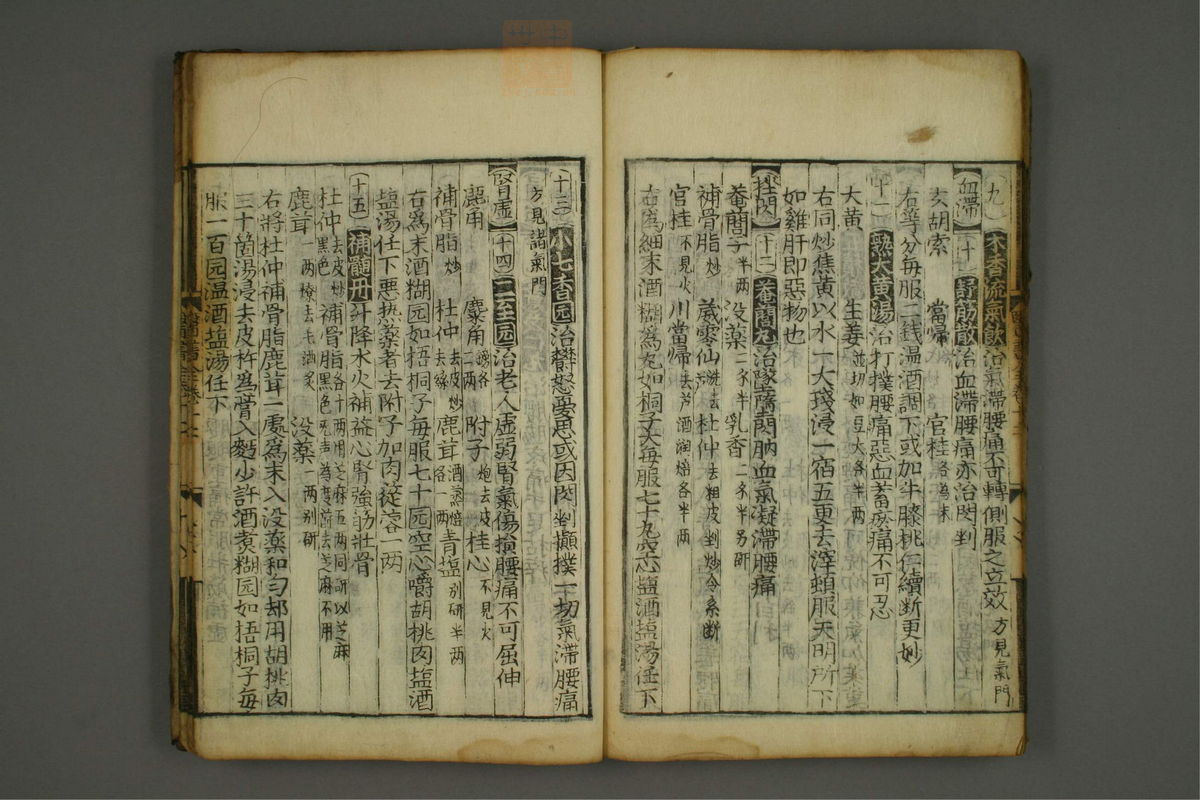 九 木香流氣飲治氣滯腰痛不可轉側服之立效方見氣門
血滯 十 舒筋散治血滯腰痛亦治閃剉
玄胡索 當歸 官桂各為末
右等分每服二錢温酒調下或加牛膝桃仁續斷更妙
十一 熟大黄湯治打撲腰痛惡血蓄瘀痛不可忍
大黄 生姜並切如豆大各半两
右同炒焦黄以水一大琖浸一宿五更去滓頓服天明所下
如雞肝即惡物也
挫閃 十二 菴䕡丸治墜墮閃肭血氣凝滯腰痛
菴䕡子半两 没藥二戔半 乳香二戔半另研
補骨脂炒 葳零仙洗去 杜仲去粗皮剉炒令系斷
官桂不見火 川當歸去芦酒润焙各半两
右為細末酒糊為丸如桐子大每服七十丸空心塩酒塩湯任下
十三 小七香园治欝怒憂思或因閃剉顚撲一切氣滯腰痛
方見諸氣門
腎虚 十四 二至园治老人虚弱腎氣傷損腰痛不可屈伸
鹿角 麋角鎊各二两 附子炮去皮 桂心不見火
補骨脂炒 杜仲去皮炒去絲 鹿茸酒蒸焙各一两 青塩别研半两
右為末酒糊园如梧桐子每服七十园空心嚼胡桃肉塩酒
塩湯任下惡热藥者去附子加肉蓯容一两
十五 補髓丹升降水火補益心腎強筋壯骨
杜仲去皮炒黑色 補骨脂各十两用芝麻五两同研以芝麻黑色无声為度篩去芝麻不用
鹿茸二两燎去毛酒炙 没藥一两别研
右將杜仲補骨脂鹿茸一處為末入没藥和勻却用胡桃肉
三十箇湯浸去皮杵為膏入麪少許酒煑糊园如梧桐子每
服一百园温酒塩湯任下